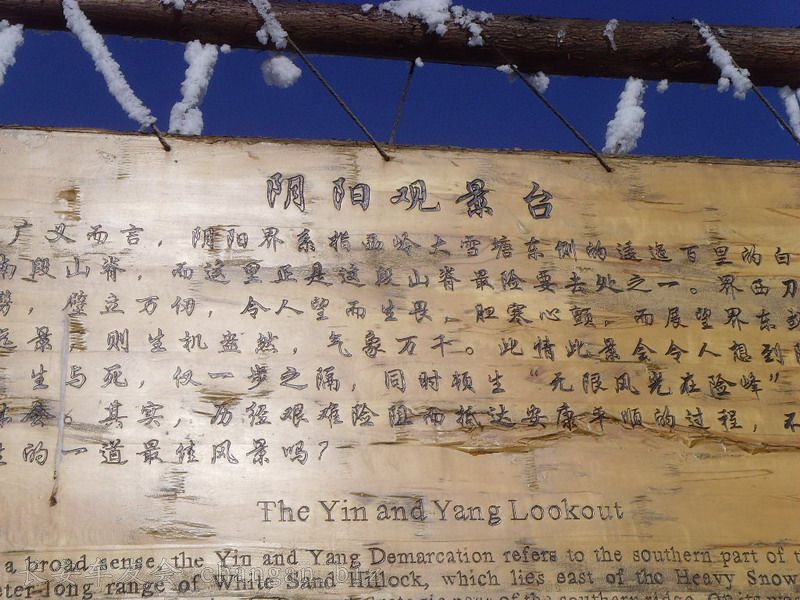 阴阳观景台
广义而言，阴阳界系指西岭大雪塘东侧的逶迤百里的白
南段山脊，而这里正是这段山脊最险要去处之一。界西刀
势，壁立万仞，令人望而生畏，胆寒心颤，而展望界东
远景，则生机盎然，气象万千。此情此景会令人想到阴
生与死，仅一步之隔，同时顿生“无限风光在险峰”
其实，历经艰难险阻而抵达安康平顺的过程，不
生的一道最佳风景吗？
The Yin and Yang Lookout
a broad sense, the Yin and Yang Demarcation refers to the southern part of t
eter-long range of White Sand Hillock, which lies east of the Heavy Snow
of the southern ridge. On its